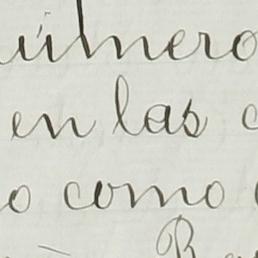 número
en las
o como